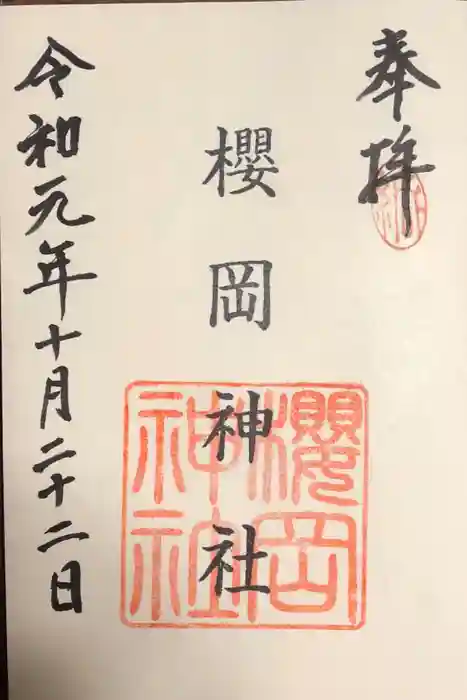 奉拝
櫻岡神社
櫻岡神社
令和元年十月二十二日